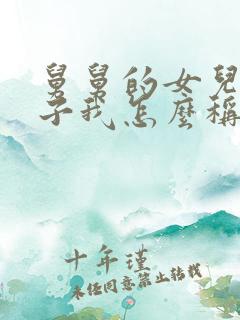 舅舅的女兒
子我怎麼稱
十年瑾
未经同意禁止转载